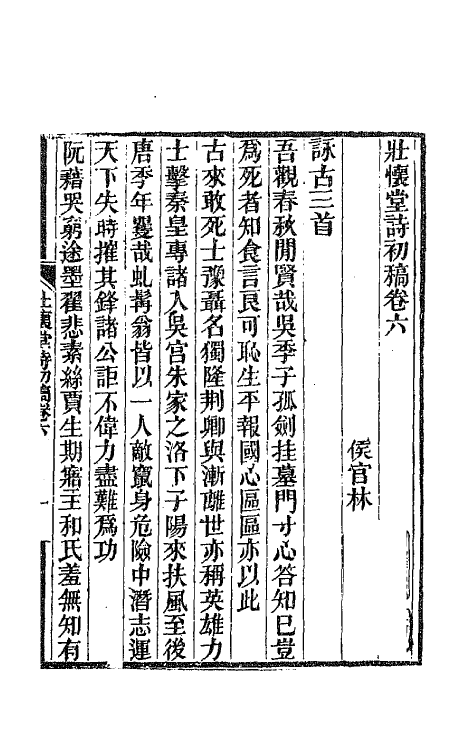 壯懷堂詩初稿卷六
侯官林
詠古三首
吾觀春秋閒賢哉吳季子孤劍挂墓門寸心答知已豈
爲死者知食言良可恥生平報國心區區亦以此
古來敢死士豫聶名獨隆荆卿與漸離世亦稱英雄力
士擊秦皇專諸入吳宫朱家之洛下子陽來扶風至後
唐季年羇哉虬髯翁皆以一人敵竄身危險中潛志運
天下失時摧其鋒諸公詎不偉力盡難爲功
阮藉哭窮途墨翟悲素絲賈生期寤王和氏羞無知有
壯懷堂詩初稿卷六
一